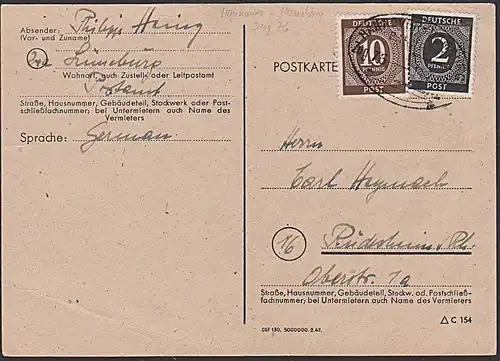 Absender: Philipp Heinz
(Vor- und Zuname)
Lüneburg
Wohnort, auch Zustell- oder Leitpostamt
Postamt
Straße, Hausnummer, Gebäudeteil, Stockwerk oder Post-
schließfachnummer; bei Untermietern auch Name des
Vermieters
Sprache: German
POSTKARTE
DEUTSCHE
10
PFENNIG
POST
DEUTSCHE
2
PFENNIG
POST
Herrn
Carl Heymach
16
Rüdesheim/Rh.
Oberstr. 1a
Straße, Hausnummer, Gebäudeteil, Stockw. od. Postschließ-
fachnummer; bei Untermietern auch Name des Vermieters
△ C 154
GSF 130. 5000000. 2.47.